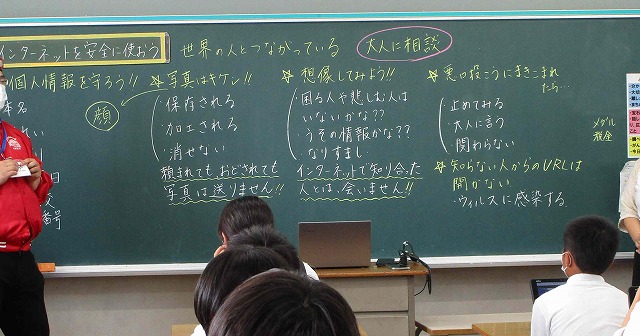 インターネットを安全に使おう
世界の人とつながっている
大人に相談
個人情報を守ろう!!
本名
番号
☆写真はキケン!!
顔
保存される
加工される
消せない
頼まれても、おどされても
写真は送りません!!
☆想像してみよう!!
困る人や悲しむ人は
いないかな??
うその情報かな??
なりすまし
インターネットで知り合った
人とは、会いません!!
☆悪い投こうにまきこまれ
たら…
止めてみる
・大人に言う
・関わらない
☆知らない人からのURLは
開かない
・ウィルスに感染する